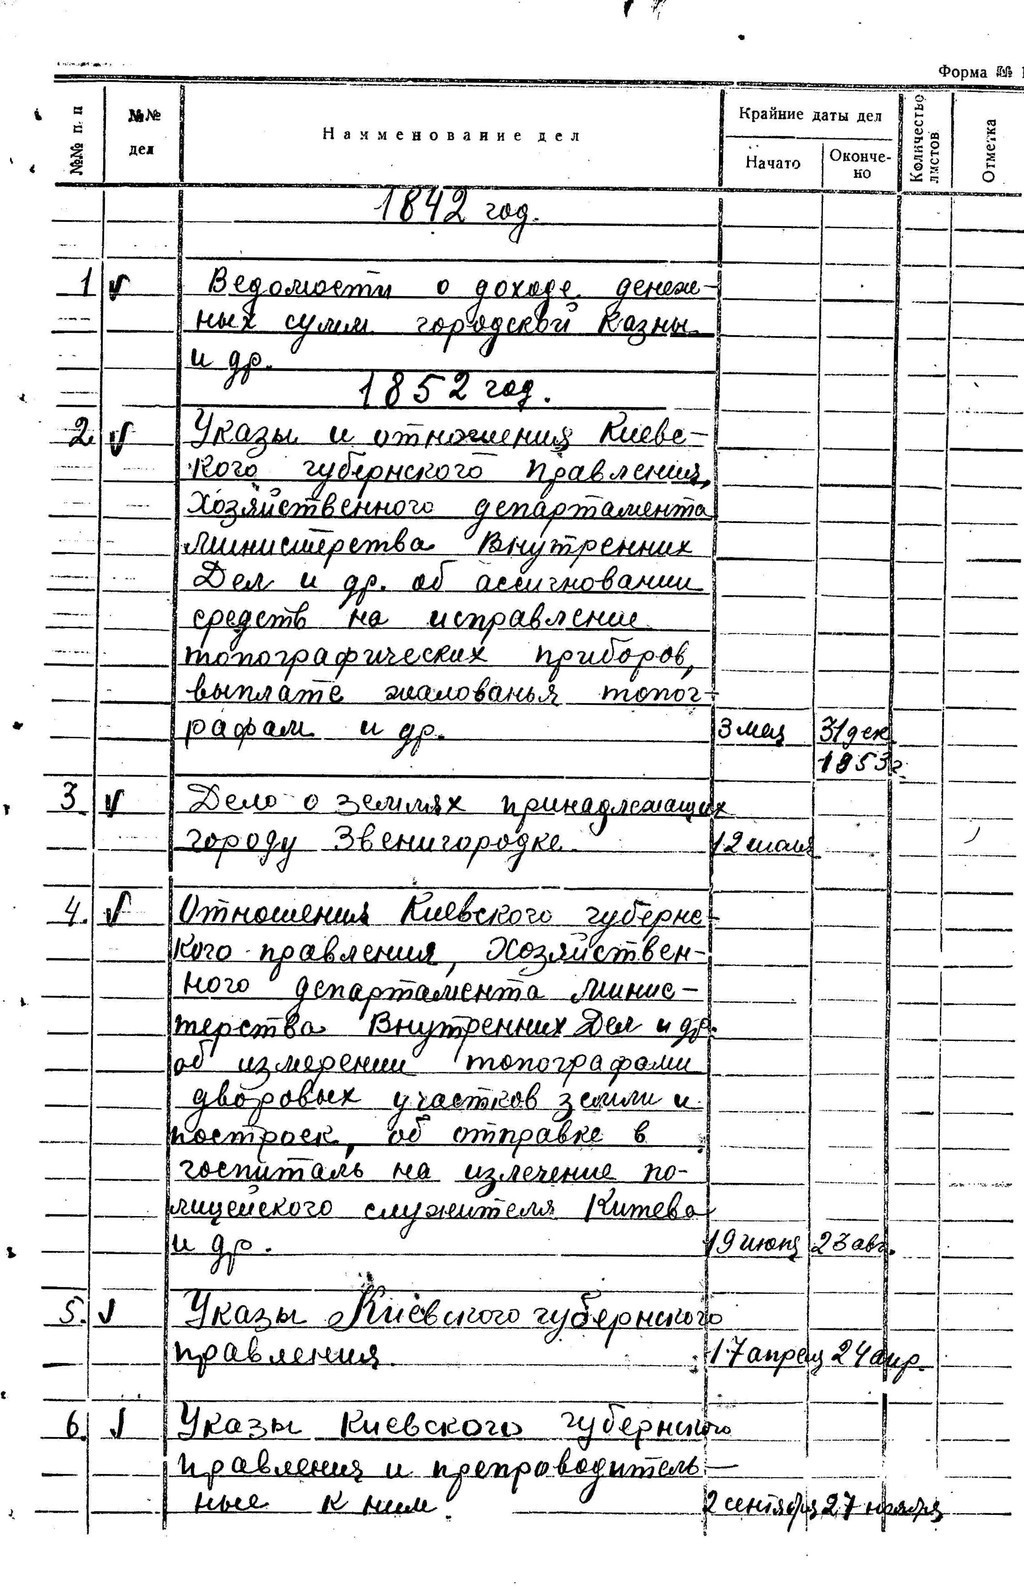 Форма №
№№ п. п
№№ дел
Наименование дел
Крайние даты дел
Начато
Окончено
Количество листов
Отметка
1842 год.
1 Ведомости о доходе денеж-
ных сумм городской казны
и др.
1852 год.
2. Указы и отношения Киевс-
кого губернского правления,
Хозяйственного департамента
Министерства Внутренних
Дел и др. об ассигновании
средств на исправление
топографических приборов,
выплате жалованья топог-
рафам и др. 3 мая 31 дек.
1853 г.
3. Дело о землях принадлежащих
городу Звенигородке 12 июля
4. Отношения Киевского губернс-
кого правления, Хозяйствен-
ного департамента Минис-
терства Внутренних Дел и др.
об измерении топографами
дворовых участков земли и
построек, об отправке в
госпиталь на излечение по-
лицейского служителя Китева
и др. 19 июня 23 авг.
5. Указы Киевского губернского
правления 17 апреля 24 апр.
6. Указы Киевского губернского
правления и препроводитель-
ные к ним. 2 сентября 27 ноября